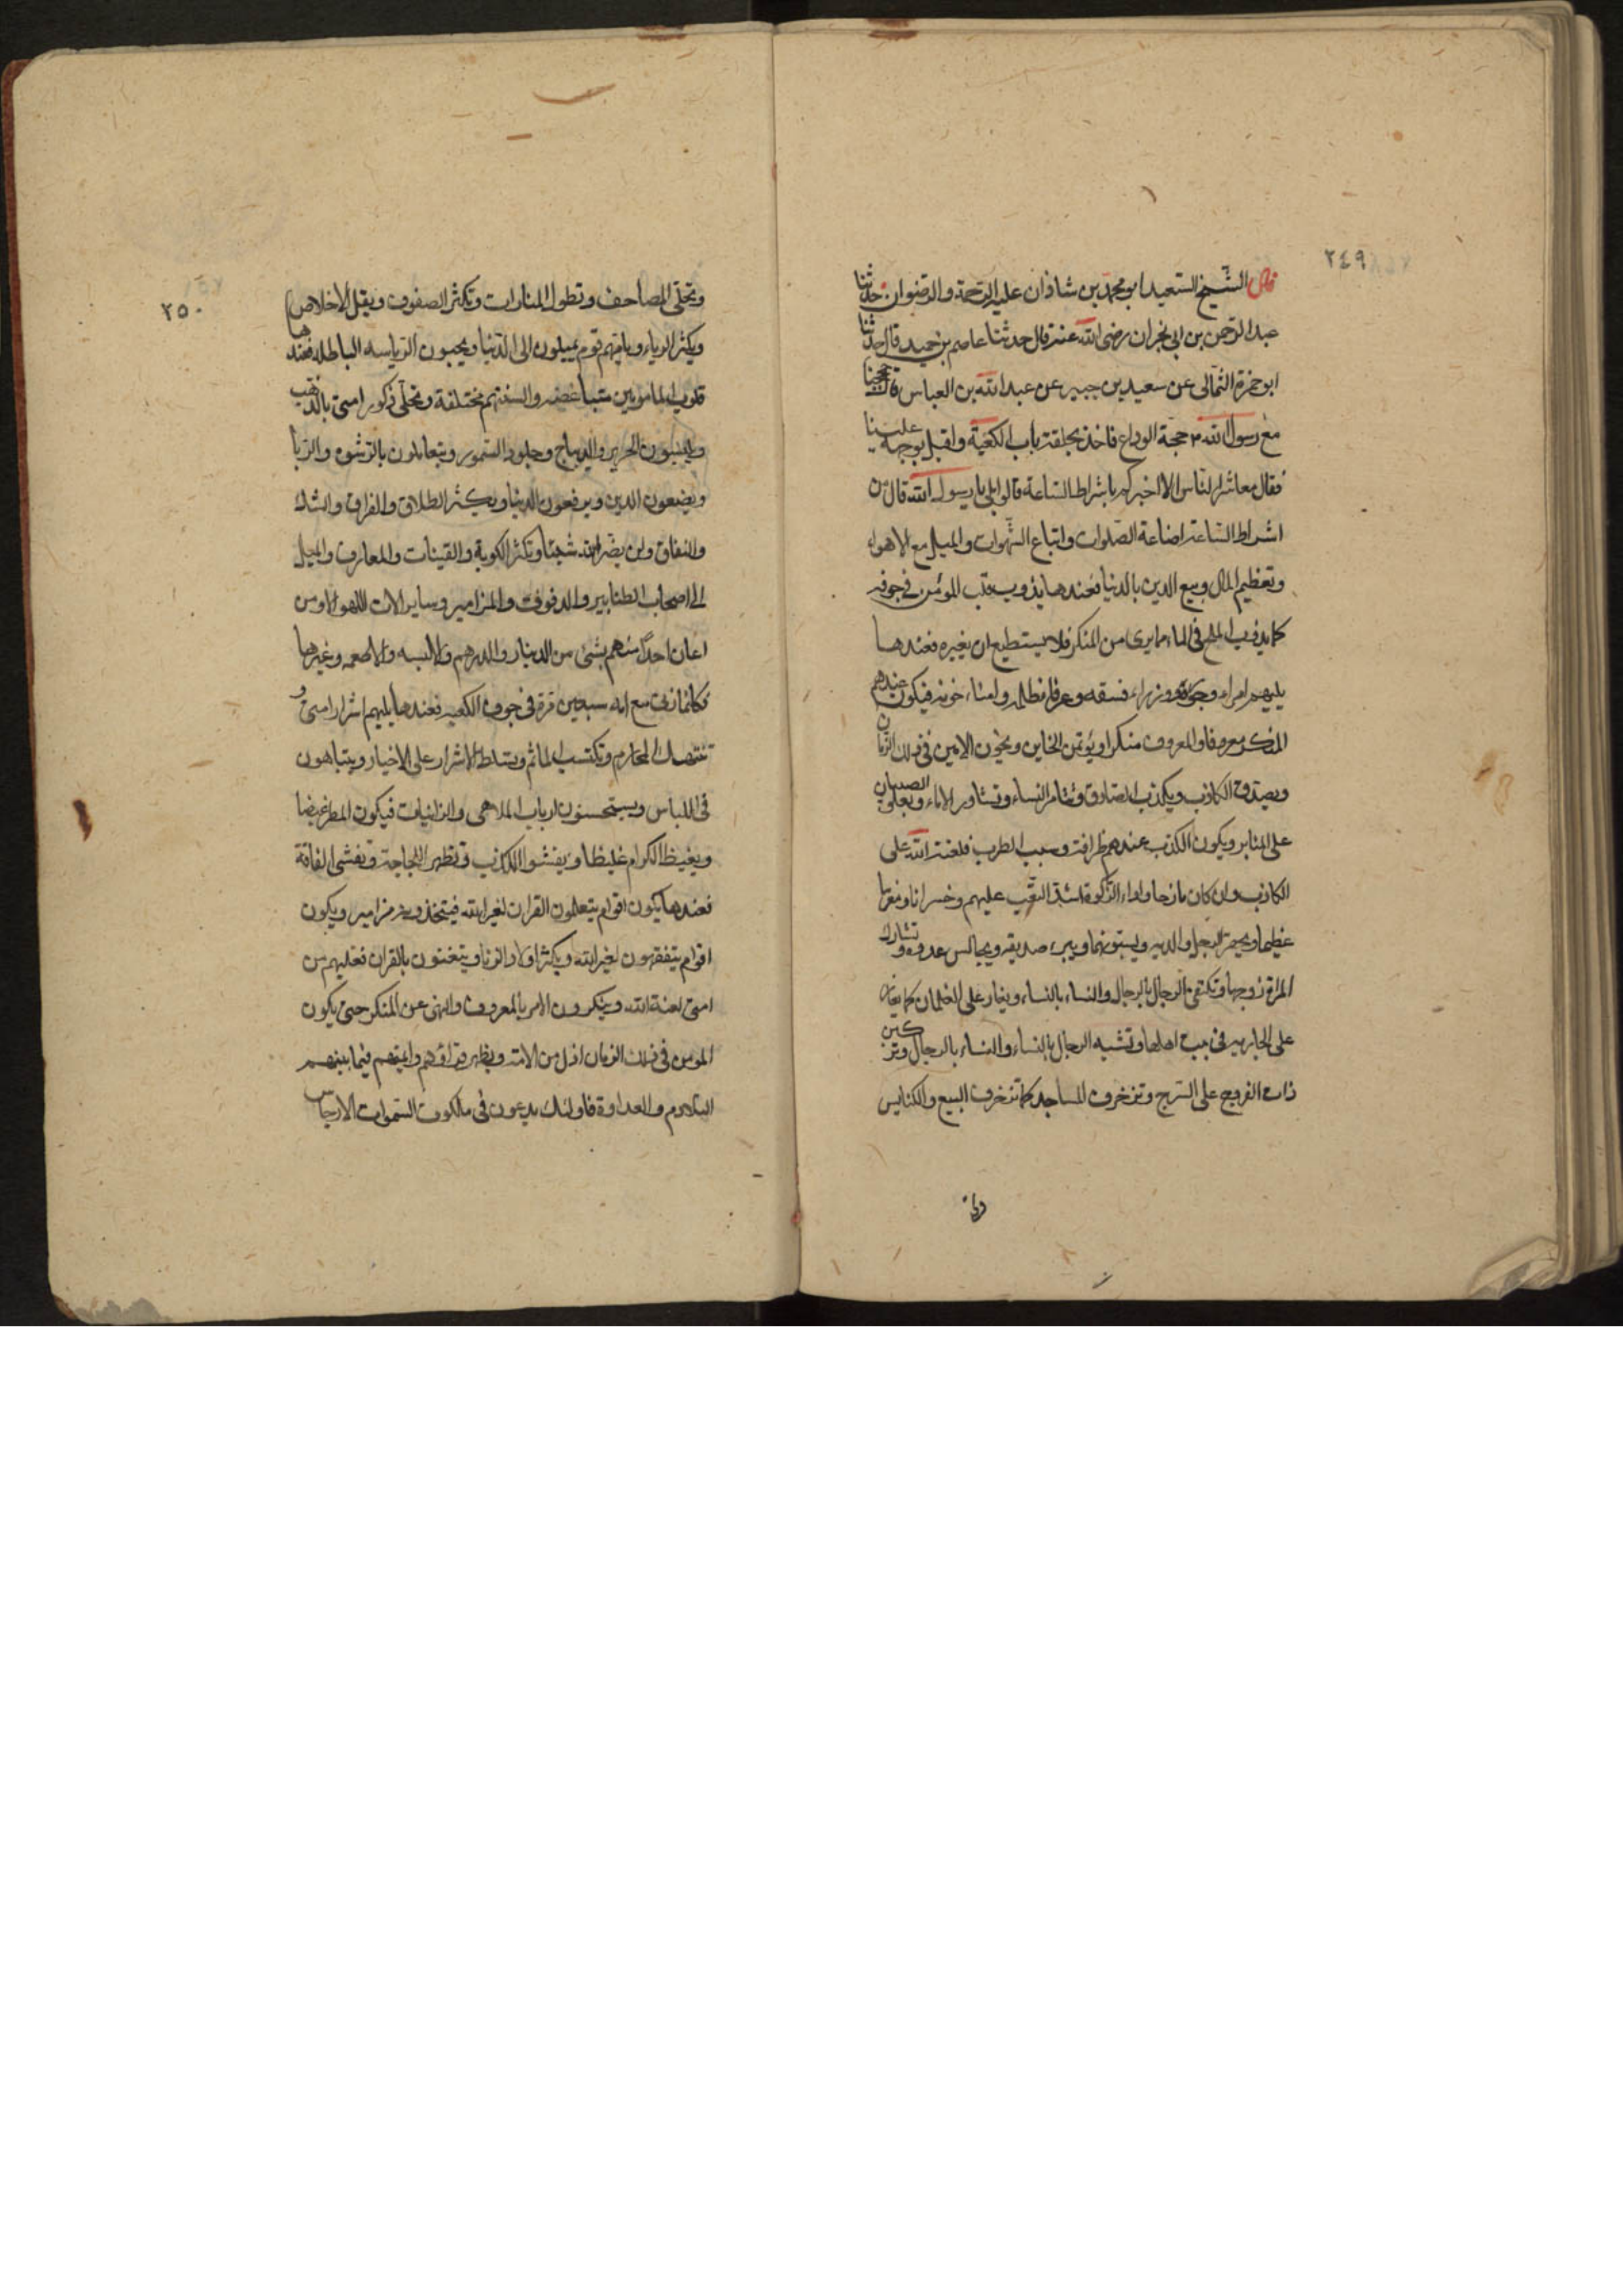 ٢٤٩
قال الشيخ السعيد ابو محمد بن شاذان عليه الرحمة والرضوان حدثنا
عبد الرحمن بن ابی نجران رضی الله عنه قال حدثنا عاصم بن حميد قال حدثنا
ابو حمزة الثمالی عن سعيد بن جبير عن عبد الله بن العباس قال حججنا
مع رسول الله ص حجة الوداع فاخذ بحلقة باب الكعبة واقبل بوجهه علينا
فقال معاشر الناس الا اخبركم باشراط الساعة قالوا بلی يا رسول الله قال من
اشراط الساعة اضاعة الصلوات واتباع الشهوات والميل مع الاهواء
وتعظيم المال وبيع الدين بالدنيا فعندها يذوب قلب المؤمن فی جوفه
كما يذوب الملح فی الماء مما يری من المنكر فلا يستطيع ان يغيره فعندها
يليهم امراء وزراء فسقه وعرفا ظلمه وامناء خونه فيكون عندهم
المنكر معروفا والمعروف منكرا ويؤتمن الخاين ويخون الامين فی ذلك الزمان
ويصدق الكاذب ويكذب الصادق وتتامر النساء وتشاور الاماء ويعلو الصبيان
علی المنابر ويكون الكذب عندهم ظرافة فلعنة الله علی
الكاذب وان كان مازحا واداء الزكوة اشد التعب عليهم وخسرانا ومغرما
عظيما ويحقر الرجل والديه ويسبهما ويبرء صديقه ويجالس عدوه وتشارك
المراة زوجها وتكتفی الرجال بالرجال والنساء بالنساء ويغار علی الغلمان كما يغار
علی الجاريه فی بيت اهلها وتشبه الرجال بالنساء والنساء بالرجال وتركبن
ذات الفروج علی السرج وتزخرف المساجد كما تزخرف البيع والكنايس
٢٥٠
وتحلی المصاحف وتطول المنارات وتكثر الصفوف ويقل الاخلاص
ويكثر الرياء ويامهم قوم يميلون الی الدنيا ويحبون الرياسه الباطله فعندها
قلوب المامومين متباغضه والسنتهم مختلفة وتحلی ذكور امتی بالذهب
ويلبسون الحرير والديباج وجلود السمور ويتعاملون بالرشوه والربا
ويضعون الدين ويرفعون الدنيا ويكثر الطلاق والفراق والشك
والنفاق ولن يضر الله شيئا وتكثر الكوبة والقينات والمعازف والميل
الی اصحاب الطنابير والدفوف والمزامير وساير الات اللهو الا ومن
اعان احدا منهم بشیء من الدينار والدرهم والالبسه والاطعمه وغيرها
فكانما زنی مع امه سبعين مرة فی جوف الكعبه فعندها يليهم اشرار امتی و
تنتهك المحارم وتكتسب الماثم ويسلط الاشرار علی الاخيار ويتباهون
فی اللباس ويستحسنون ارباب الملاهی والزانيات فيكون المطر غيضا
ويغيظ الكرام غيظا ويفشوا الكذب وتظهر اللجاجة وتفشی الفاقة
فعندها يكون اقوام يتعلمون القران لغير الله فيتخذونه مزامير ويكون
اقوام يتفقهون لغير الله ويكثر اولاد الزنا ويتغنون بالقران فعليهم من
امتی لعنة الله وينكرون الامر بالمعروف والنهی عن المنكر حتی يكون
المومن فی ذلك الزمان اذل من الامة ويظهر قراؤهم وايمتهم فيما بينهم
التلاوم والعداوة فاولئك يدعون فی ملكوت السموات الارجاس